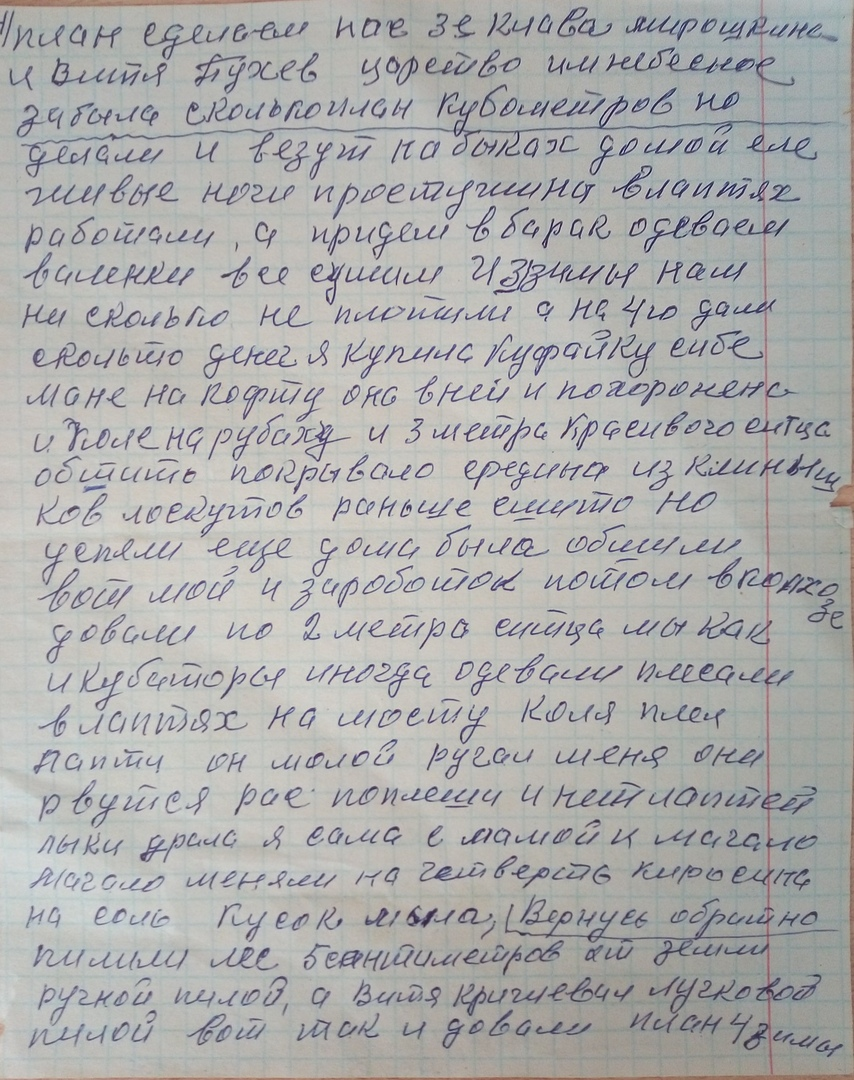 план сделаем нас 3е Клава мирошкина
и Витя Пухев царство им небесное
забыла сколько план Кубометров но
делали и везут на быках домой еле
живые ноги простужина в лаптях
работали, а придем в барак одеваем
валенки все сушим И 3 зимы нам
ни сколько не плотили а на 4го дали
скольто денег я купила Куфайку сибе
мане на кофту она в ней и похоронена
и Коле на рубаху и 3 метра Красивого ситца
обшить покрывало средина из клиныш
ков лоскутов раньше сшито но
успели еще дома была обшили
вот мой и зароботок потом в колхо
зе
довали по 2 метра ситца мы как
икубаторы иногда одевали плесали
в лаптях на мосту Коля плел
лапти он малой ругал меня они
рвутся рас поплеши и нет лаптей
лыки драла я сама с мамой и мачало
мачало меняли на четверсть киросина
на соль Кусок мыла, Вернусь обратно
пилили лес 5 сантиметров от земли
ручной пилой, а Витя Лучковой
пилой вот так и довали план 4 зимы